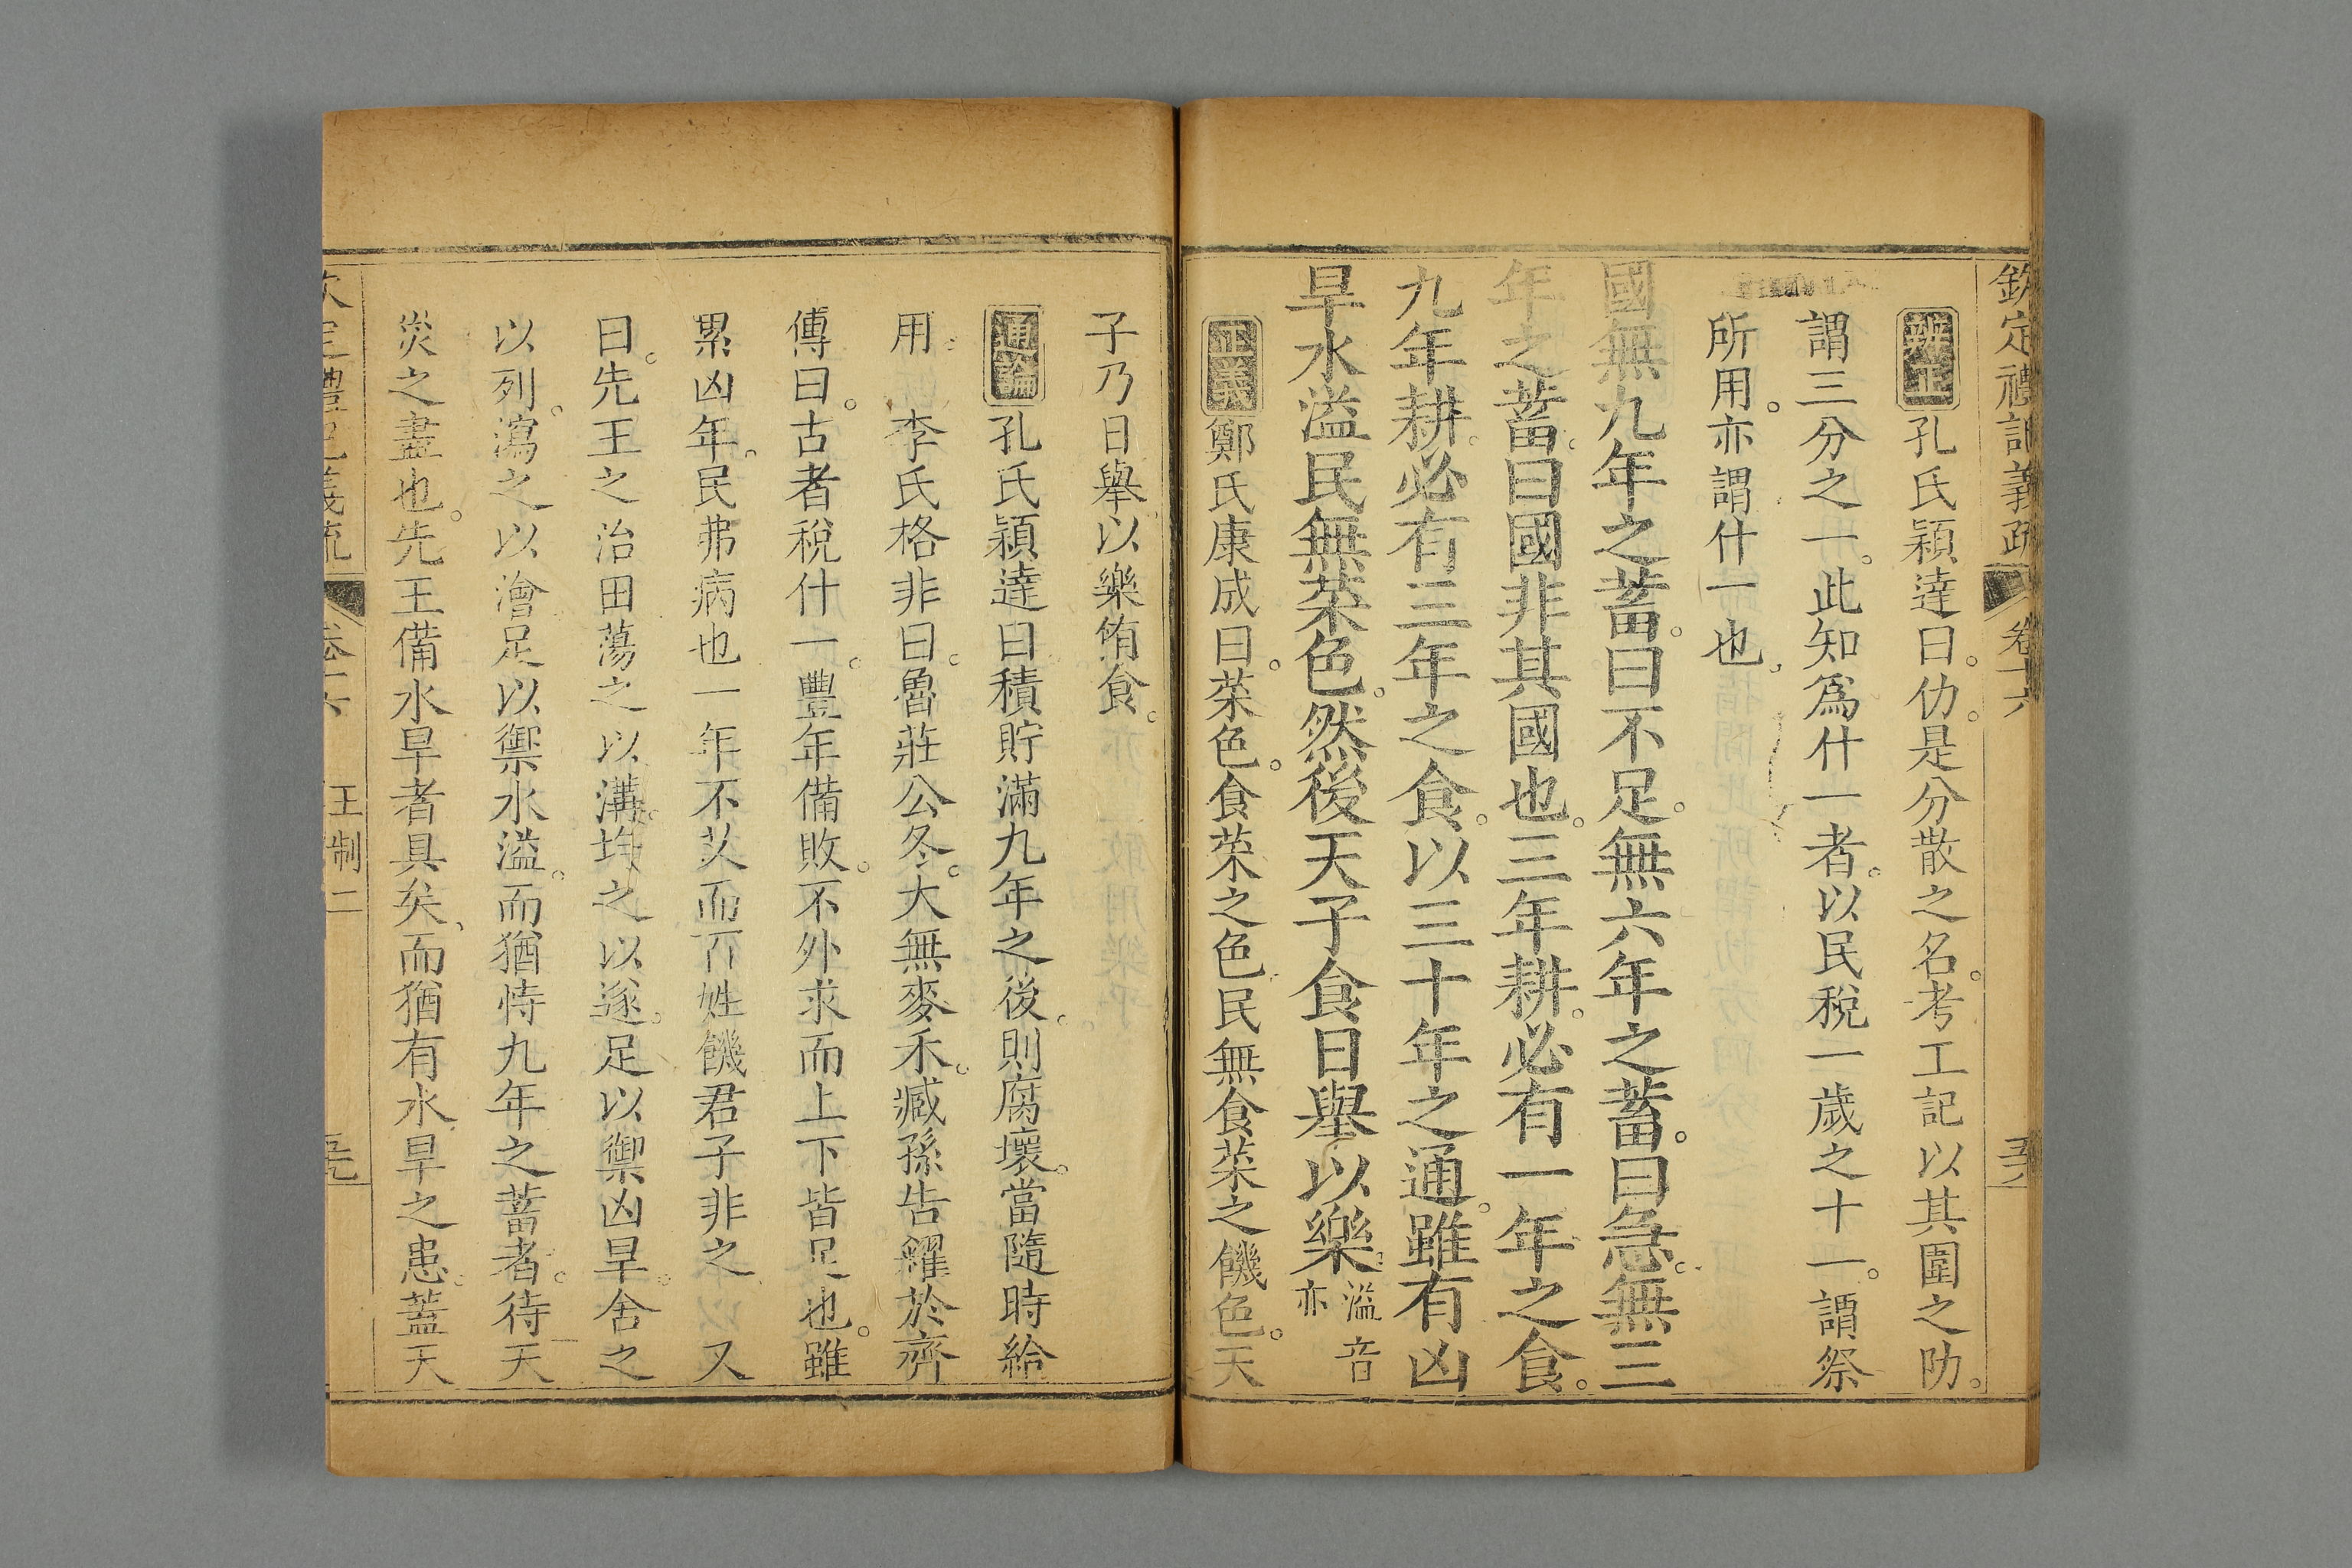 欽定禮記義疏 卷十六
辨正 孔氏穎達曰。仂。是分散之名。考工記以其圍之阞。
謂三分之一。此知爲什一者。以民稅一歲之十一。謂祭
所用。亦謂什一也。
國無九年之蓄。曰不足。無六年之蓄。曰急。無三
年之蓄。曰國非其國也。三年耕。必有一年之食。
九年耕。必有三年之食。以三十年之通。雖有凶
旱水溢。民無菜色。然後天子食。日舉以樂。溢音亦
正義 鄭氏康成曰。菜色。食菜之色。民無食菜之饑色。天
子乃日舉以樂侑食。
通論 孔氏穎達曰。積貯滿九年之後。則腐壞。當隨時給
用。 李氏格非曰。魯莊公冬。大無麥禾。臧孫告糴於齊
傳曰。古者稅什一。豐年備敗。不外求而上下皆足也。雖
累凶年。民弗病也一年不艾而百姓饑君子非之 又
曰。先王之治田蕩之以溝。均之以遂。足以禦凶旱。舍之
以列。瀉之以澮足以禦水溢。而猶恃九年之蓄者。待天
災之盡也。先王備水旱者具矣。而猶有水旱之患。蓋天
王制二